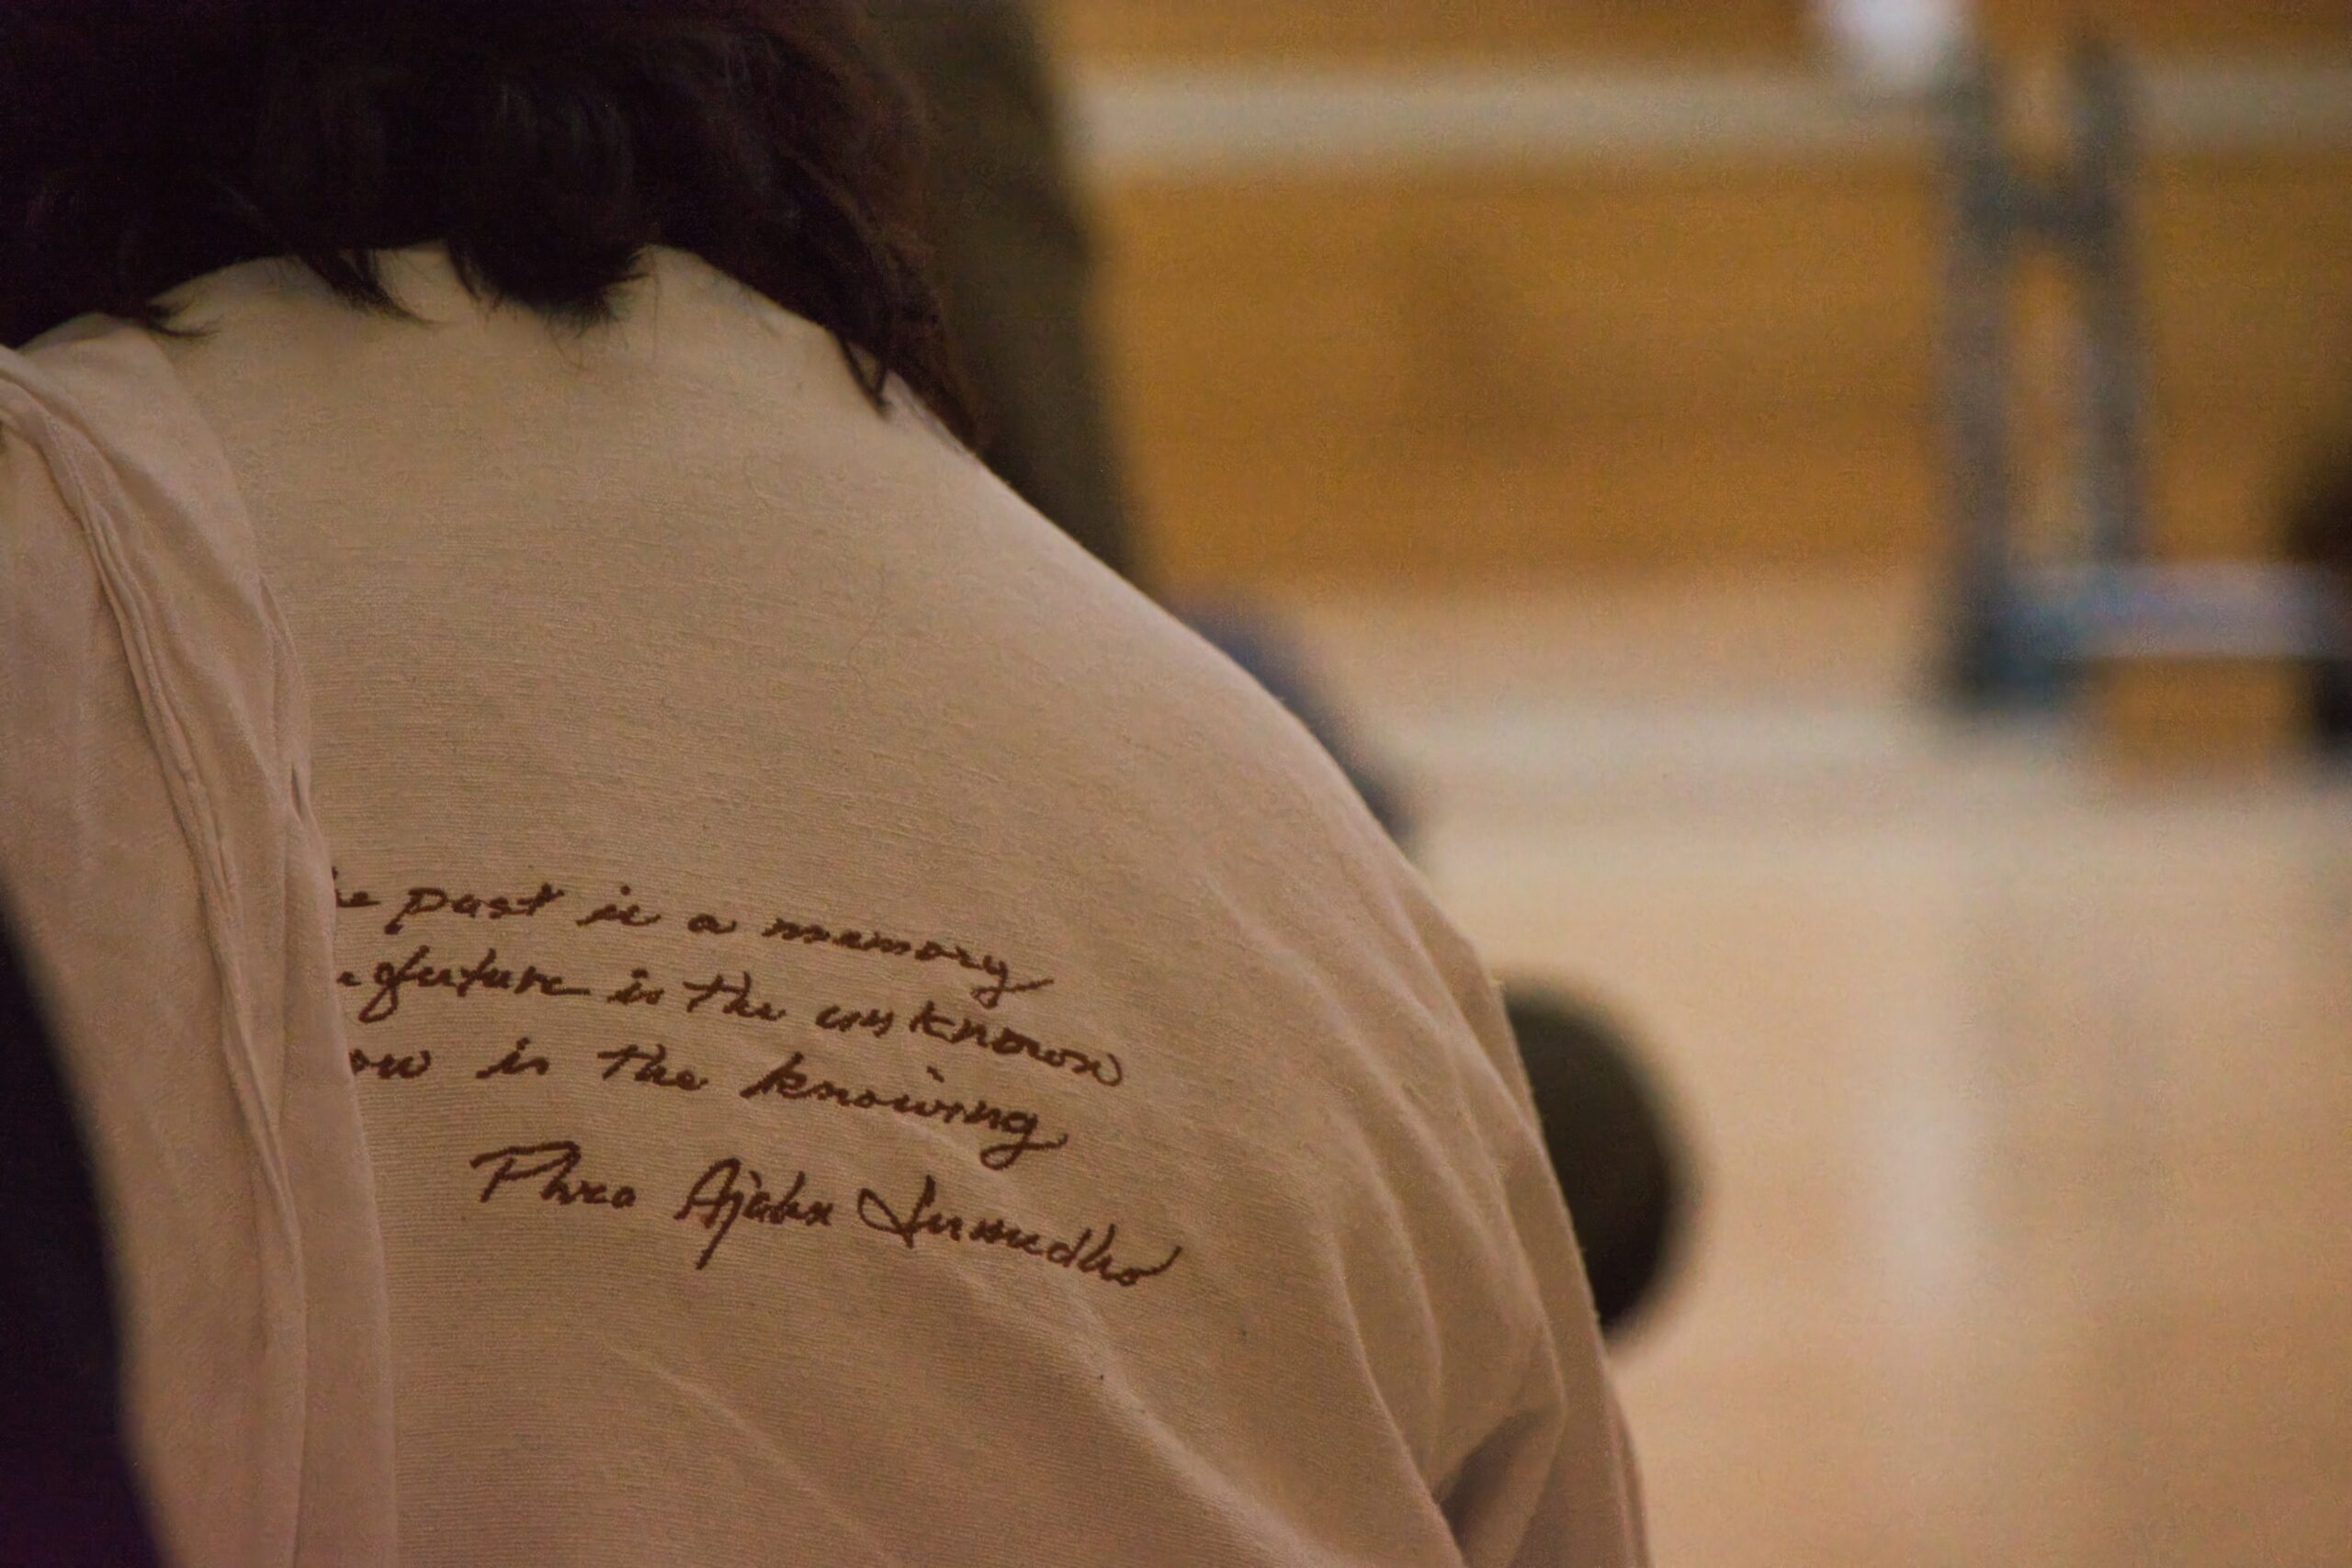 he past is a memory
e future is the unknown
ow is the knowing
Phra Ajahn Sumedho